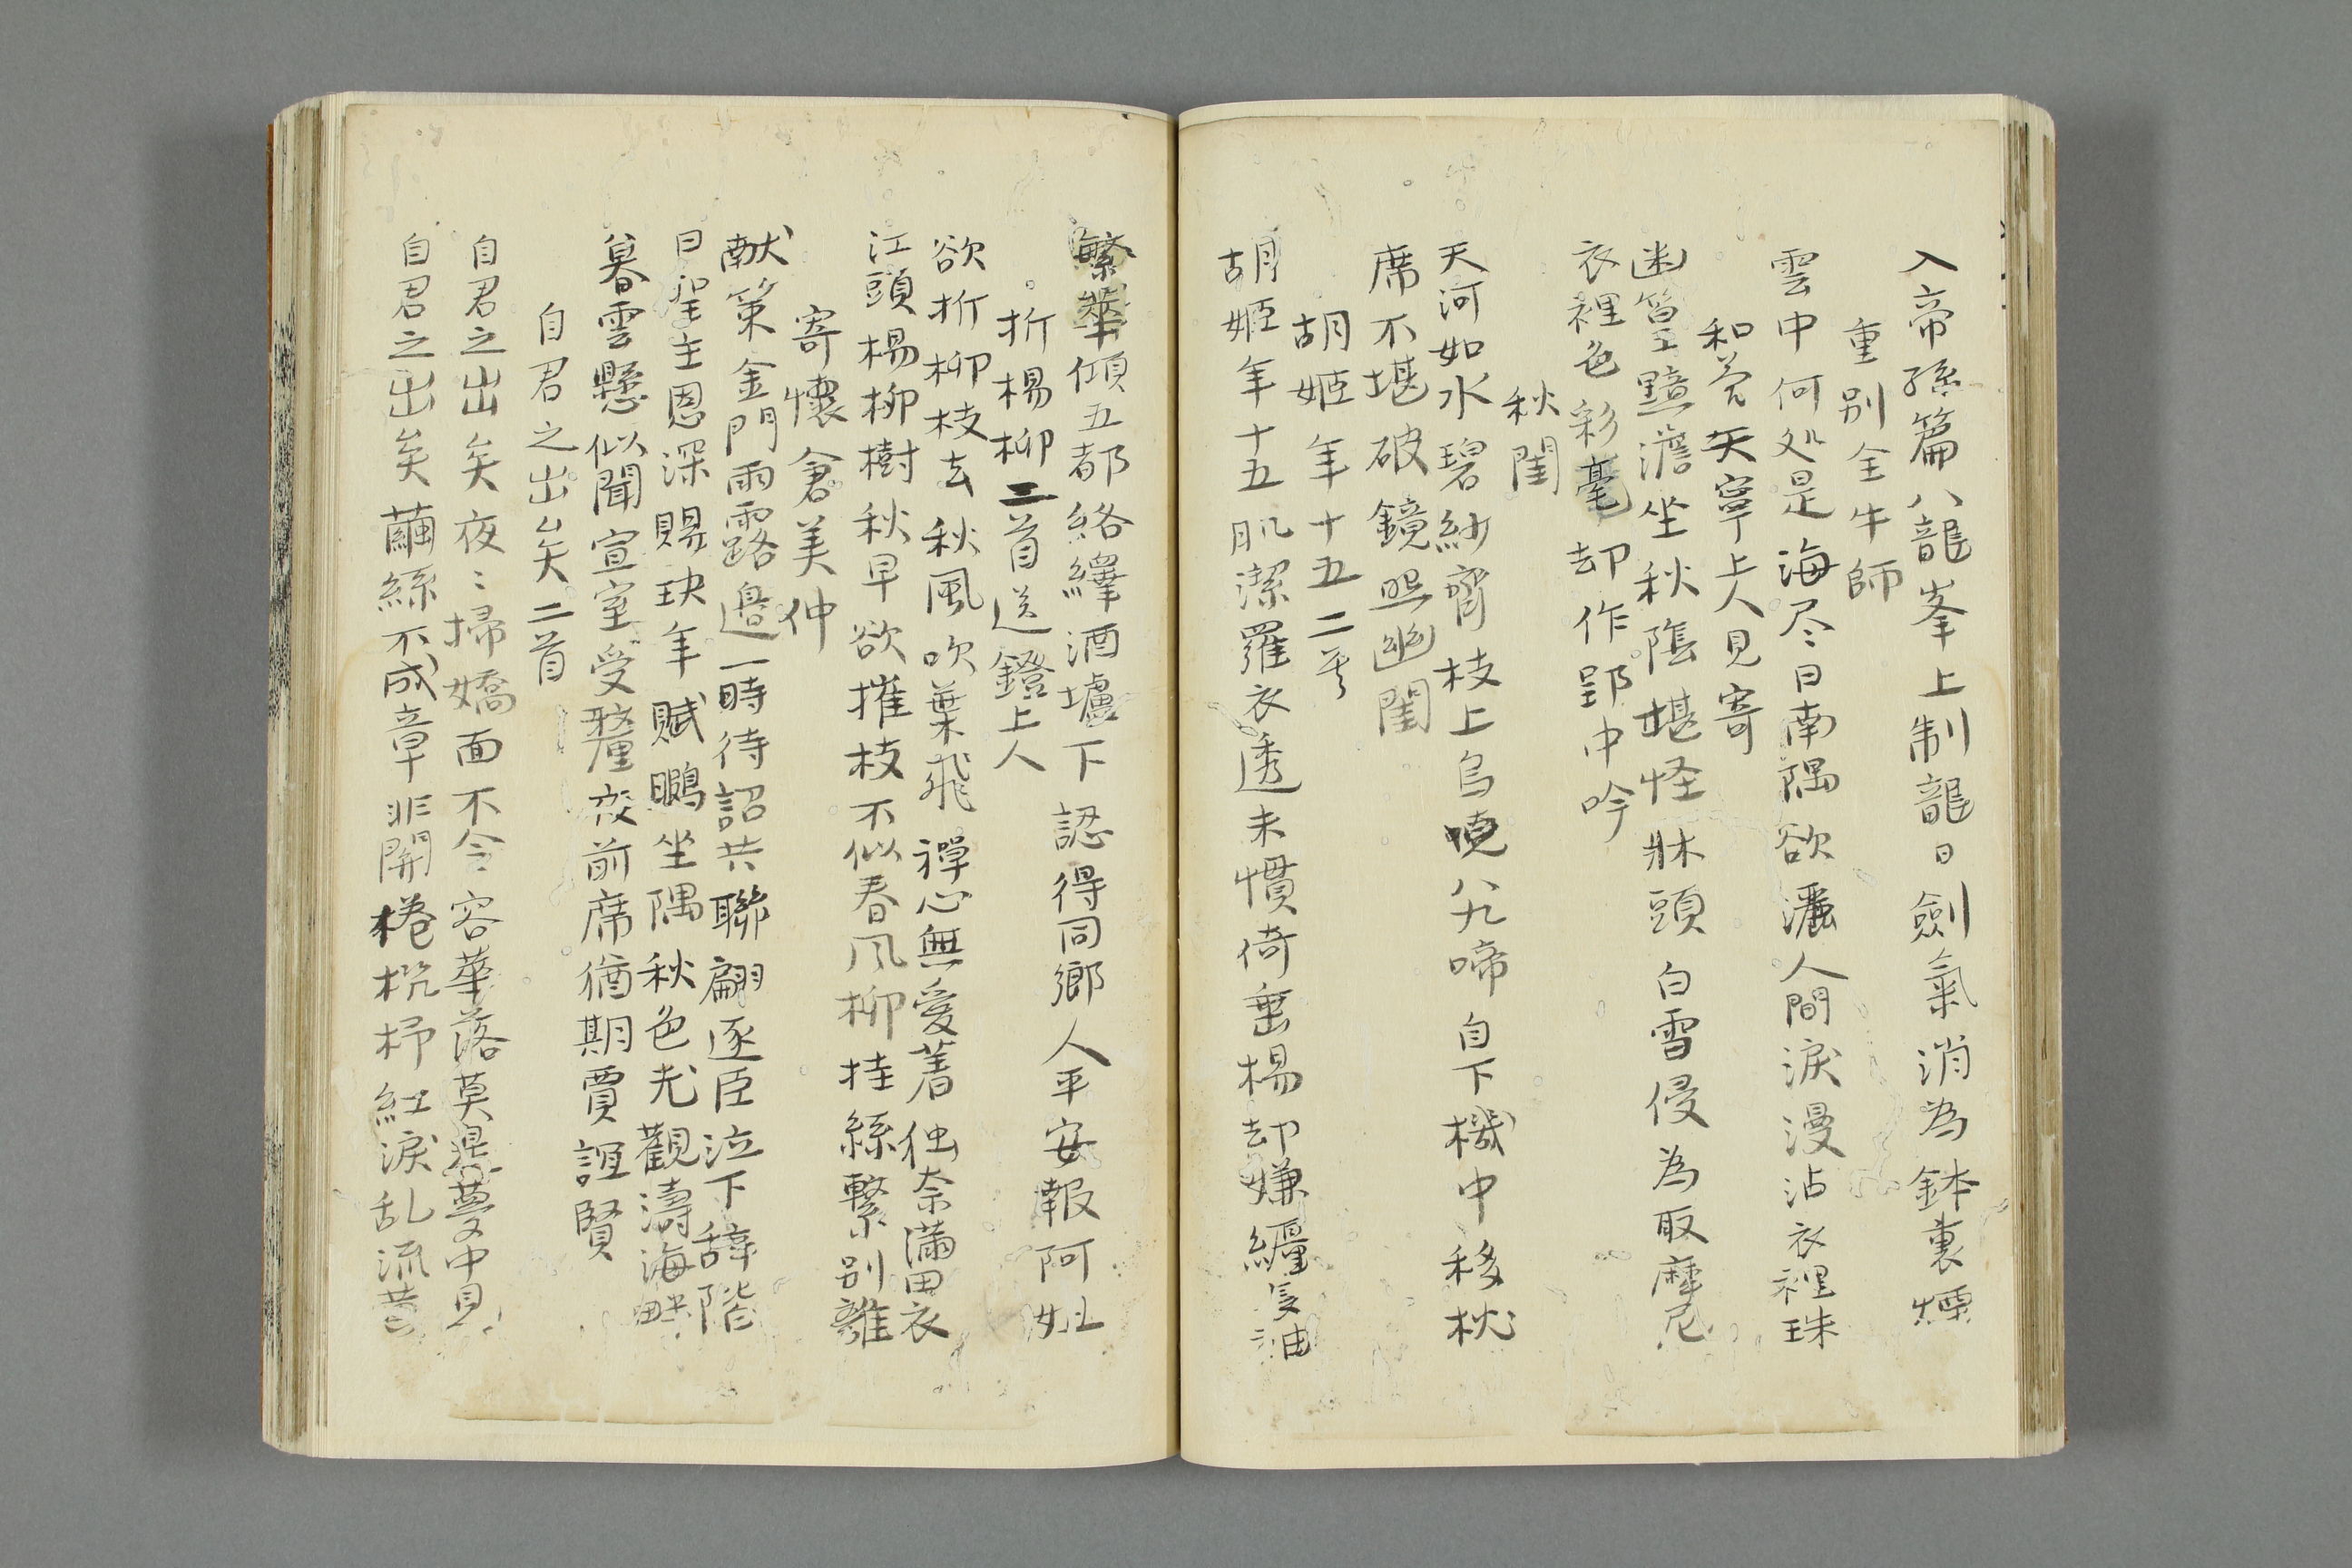 入帝孫篇八龍峯上制龍日劍氣消為鉢裏煙
重別全牛師
雲中何処是海尽日南隅欲灑人間淚漫沾衣裡珠
和天寧上人見寄
幽篁黯澹坐秋陰堪怪牀頭白雪侵為取摩尼
衣裡色彩毫却作郢中吟
秋閨
天河如水碧紗窗枝上烏啼自下機中移枕
席不堪破鏡照幽閨
胡姬年十五二首
胡姬年十五肌潔羅衣透未慣倚垂楊却嫌纏油
繁華傾五都絡繹酒壚下認得同鄉人平安報阿
折楊柳二首送鐙上人
欲折柳枝去秋風吹葉飛禪心無愛著奈滿田衣
江頭楊柳樹秋早欲摧枝不似春風柳挂絲繫別離
寄懷倉美仲
献策金門雨露邊一時待詔共聯翩逐臣泣下辞階
日聖主恩深賜玦年賦鵩坐隅秋色老觀濤海畔
暮雲懸似聞宣室受釐夜前席猶期賈誼賢
自君之出矣二首
自君之出矣夜〻掃嬌面不令容華落莫是夢中見
自君之出矣繭絲不成章非關捲杼紅淚乱流黄